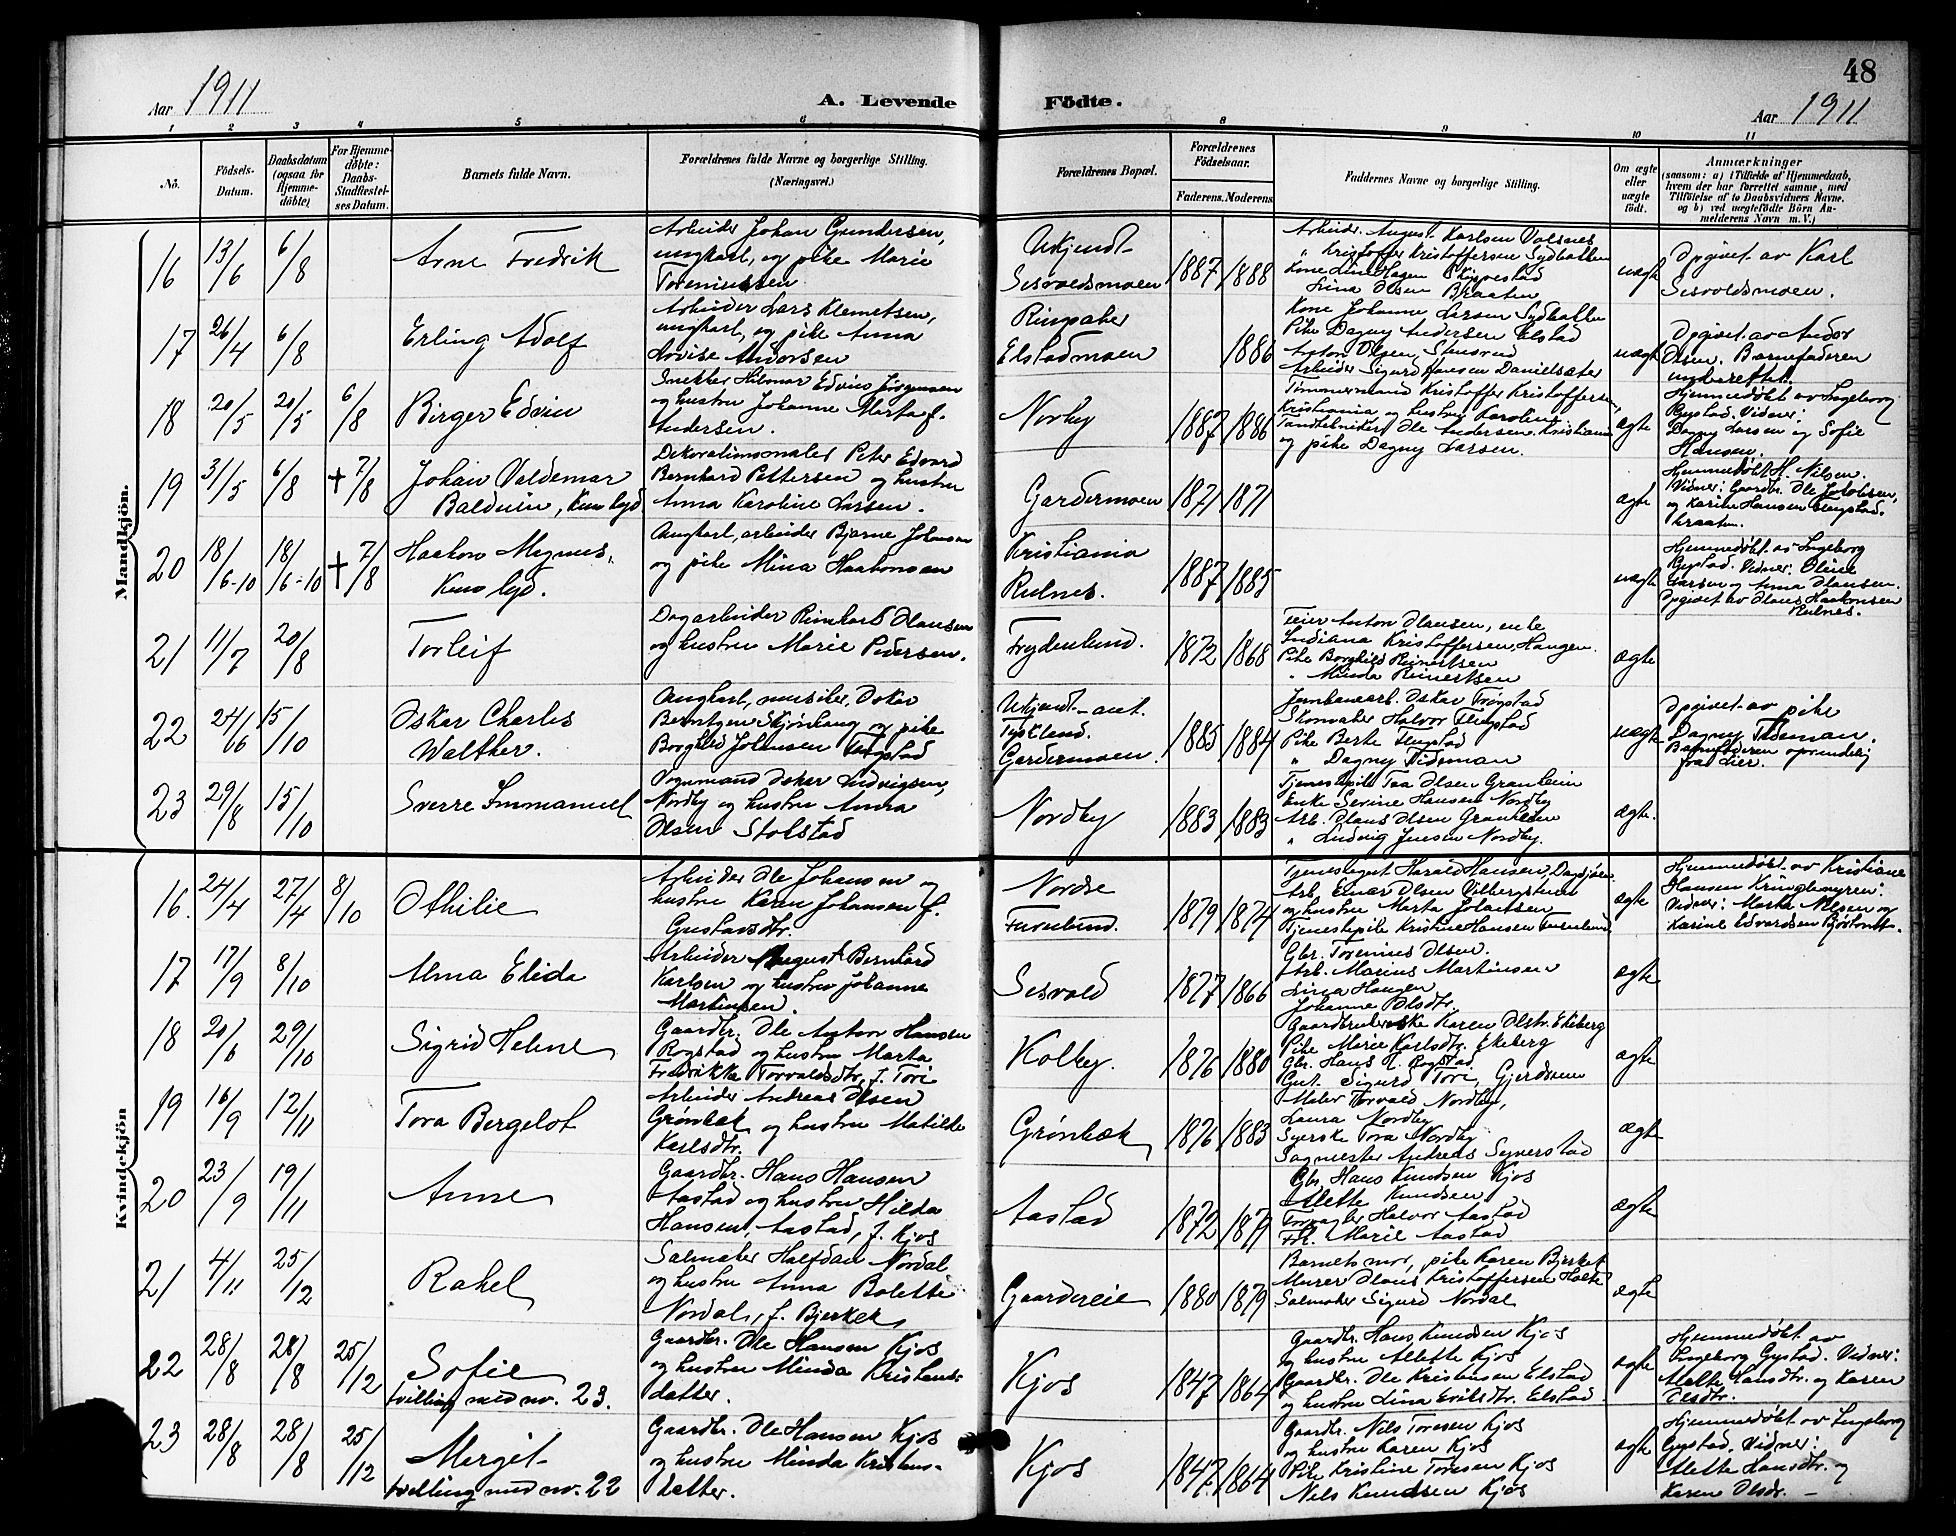 48
Aar 1911
A. Levende Födte.
Aar 1911
1 2 3 4 5 6 8 9 10 11
No.
Födsels-Datum.
Daabsdatum (ogsaa for Hjemme-döbte)
For Hjemme-döbte: Daabs-Stadfæstel-ses Datum.
Barnets fulde Navn.
Forældrenes fulde Navne og borgerlige Stilling.
(Næringsvei.)
Forældrenes Bopæl.
Forældrenes Födselsaar.
Faderens. Moderens
Faddernes Navne og borgerlige Stilling.
Om ægte eller uægte födt.
Anmærkninger
(saasom: a) i Tilfælde af Hjemmedaab, hvem der har forrettet samme, med Tilföielse af to Daabsvidners Navne. og b) ved uægtefödte Börn An-melderens Navn m. V.)
Mandkjön.
16
13/6
6/8
Arne Fredrik
Arbeider Johan Gundersen,
ungkarl, og pike Marie
Toreniussen
Ukjendt
Sesvoldsmoen
1887
1888
Arbeider August Karlsen Valsnes
" Kristoffer Kristoffersen Sydbakken
Kone Lina Hagen Skippestad
Lina Olsen Braaten
uægte
Opgivet av Karl
Sesvoldsmoen.
17
26/4
6/8
Erling Adolf
Arbeider Lars Klemetsen,
ungkarl, og pike Anna
Lovise Andorsen
Ringsaker
Elstadmoen
1886
Kone Johanne Larsen Sydbakken
Pike Dagny Andersen Elstad
Anton Olsen, Stensrud
Arbeider Sigurd Hansen Danielsæter
uægte
Opgivet av Andor
Olsen. Barnefaderen
underrettet.
18
20/5
20/5
6/8
Birger Edvin
Snekker Hilmar Edvin Jørgensen
og hustru Johanne Marta f.
Andersen.
Nordby
1887
1886
Tømmermand Kristoffer Kristoffersen,
Kristiania og hustru Karoline
Tandtekniker Ole Andersen, Kristiania
og pike Dagny Larsen.
ægte
Hjemmedøbt av Ingeborg
Gystad. Vidner:
Dagny Larsen og Sofie
Hansen.
19
31/5
6/8
+ 7/8
Johan Valdemar
Balduin, Kun lyd
Dekorationsmaler Peter Edvard
Bernhard Pettersen og hustru
Anna Karoline Larsen.
Gardermoen
1871
1871
ægte
Hjemmedøbt H. Nilsen.
Vidner: Gaardbr. Ole Jakobsen,
og Karine Hansen
braaten.
20
18/6-10
18/6-10
+ 7/8
Haakon Magnus.
Kun lyd.
Ungkarl, arbeider Bjarne Johansen
og pike Mina Haakonsen
Kristiania
Rulnes.
1887
1885
uægte
Hjemmedøbt av Ingeborg
Gystad. Vidner: Oline
Larsen og Anna Olausen.
Opgivet av Olaus Haakonsen
Rulnes.
21
11/7
20/8
Torleif
Dagarbeider Reinhard Olausen
og hustru Marie Pedersen.
Frydenlund.
1872
1868
Feier Anton Olausen, enke
Indiana Kristoffersen, Haugen.
Pike Borghild Reinertsen
" Minda Reinertsen
ægte
22
24/66
15/10
Oskar Charles
Walther.
Ungkarl, musiker, Oskar
Berntzen Skjønhaug og pike
Borghild Johansen
Ukjendt – ant.
Tyskland.
Gardermoen.
1885
1884
Jernbanearb. Oskar Trøgstad
Skomaker Halvor
Pike Berte
" Dagny Tideman
uægte
Opgivet av pike
Dagny Tideman.
Barnefaderen oprindelig
fra Lier.
23
29/8
15/10
Sverre Immanuel
Vognmand Oskar Ludvigsen,
Nordby og hustru Anna
Olsen Stolstad
Nordby
1883
1883
Tjenestepike Tea Olsen Granheim
Enke Sevine Hansen Nordby
Arb. Olaus Olsen Granheim
" Ludvig Jensen Nordby.
ægte.
Kvindekjön
16.
24/4
27/4
8/10
Othilie
Arbeider Ole Johansen og
hustru Karen Johansen f.
Gustavsdtr.
Nordre
Furulund.
1879
1874
Tjenestegut Harald Hansen,
Arb. Einar Olsen
og hustru Marta Johansen
Tjenestepike Kristine Hansen Furulund
ægte
Hjemmedøbt av Kristiane
Hansen Kringlemyren.
Vidner: Marta Nilsen og
Karine Edvardsen
17
17/9
8/10
Alma Elida
Arbeider August Bernhard
Karlsen og hustru Johanne
Martinsen.
Sesvold
1877
1866
Gbr. Torenius Olsen.
Arb. Marius Martinsen
Lina Haugen
Johanne Olsdtr.
ægte
18
20/6
29/10
Sigrid Helene
Gaardbr. Ole Anton Hansen
Rogstad og hustru Marta
Fredrikke Torvaldsdtr, f. Tori
Kolby.
1876
1880
Gaardbrukerske Karen Olstr. Ekeberg
Pike Marie Karlsdtr. Ekeberg
Gbr. Hans H. Rogstad
Gut. Sigurd Tori, Gjerdrum
ægte
19
16/9
12/11
Tora Bergelot
Arbeider Andreas Olsen
Grønbæk og hustru Matilde
Karlsdtr.
Grønbæk
1876
1883
Maler Torvald Nordby,
Laura Nordby
Syerske Tora Nordby
Sagmester Andreas Synerstad
ægte
20
23/9
19/11
Anne
Gaardbr. Hans Hansen
Aastad og hustru Hilda
Hansen, Aastad, f. Kjos
Aastad
1872
1877
Gbr. Hans Knudsen Kjos
Alette Knudsen
Halvor Aastad
Frk. Marie Aastad
ægte
21
4/11
25/12
Rakel
Salmaker Halfdan Nordal
og hustru Anna Bolette
Nordal, f. Bjerke
Gaardereie
1880
1879
Barnets mor, pike Karen Bjerke
Murer Olaus Kristoffersen Holte
Salmaker Sigurd Nordal
ægte
22
28/8
28/8
25/12
Sofie
tvilling med no. 23.
Gaardbr. Ole Hansen Kjos
og hustru Minda Kristens-
datter.
Kjos
1847
1864
Gaardbr. Hans Knudsen Kjos
og hustru Alette Kjos
Gaardbr. Ole Kristensen Elstad
og hustru Lina Eriksdtr. Elstad.
ægte
Hjemmedøbt av
Ingeborg Gystad. Vidner:
Alette Hansdtr. og Karen
Olsdtr.
23
28/8
28/8
25/12
Margit
tvilling med no. 22
Gaardbr. Ole Hansen Kjos
og hustru Minda Kristens-
datter.
Kjos
1847
1864
Gaardbr. Nils Toresen Kjos
og hustru Karen Kjos
Pike Kristine Toresen Kjos
Nils Knudsen Kjos
ægte
Hjemmedøbt av Ingeborg
Gystad. Vidner:
Alette Hansdtr. og
Karen Olsdr. –